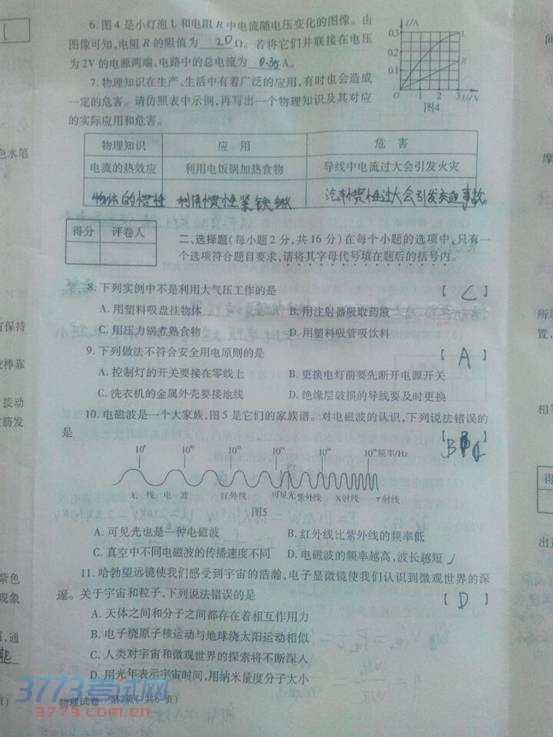 6. 图4是小灯泡L和电阻R中电流随电压变化的图像。由
图像可知,电阻R的阻值为 20 Ω。若将它们并联接在电压
为2V的电源两端,电路中的总电流为 A。
7. 物理知识在生产、生活中有着广泛的应用,有时也会造成
一定的危害。请仿照表中示例,再写出一个物理知识及其对应
的实际应用和危害。
I/A
0.3
0.2
0.1
L
R
0 1 2 3 U/V
图4
物理知识 应用 危害
电流的热效应 利用电饭锅加热食物 导线中电流过大会引发火灾
物体的惯性 利用惯性紧铁锹 汽车惯性过大会引发交通事故。
得分 评卷人
二、选择题(每小题2分,共16分)在每个小题的选项中,只有一
个选项符合题目要求,请将其字母代号填在题后的括号内。
8. 下列实例中不是利用大气压工作的是 【 C 】
A. 用塑料吸盘挂物体 B. 用注射器吸取药液
C. 用压力锅煮熟食物 D. 用塑料吸管吸饮料
9. 下列做法不符合安全用电原则的是 【 A 】
A. 控制灯的开关要接在零线上 B. 更换电灯前要先断开电源开关
C. 洗衣机的金属外壳要接地线 D. 绝缘层破损的导线要及时更换
10. 电磁波是一个大家族,图5是它们的家族谱。对电磁波的认识,下列说法错误的
是 【 B 】
频率/Hz
无线电波 红外线 可见光 紫外线 X射线 γ射线
图5
A. 可见光也是一种电磁波 B. 红外线比紫外线的频率低
C. 真空中不同电磁波的传播速度不同 D. 电磁波的频率越高,波长越短
11. 哈勃望远镜使我们感受到宇宙的浩瀚,电子显微镜使我们认识到微观世界的深
邃。关于宇宙和粒子,下列说法错误的是 【 D 】
A. 天体之间和分子之间都存在着相互作用力
B. 电子绕原子核运动与地球绕太阳运动相似
C. 人类对宇宙和微观世界的探索将不断深入
D. 用光年表示宇宙时间,用纳米量度分子大小
3773考试网
3773.com.cn
物理试卷 第2页(共6页)
色水笔
有保持
拨动
紫色
现象